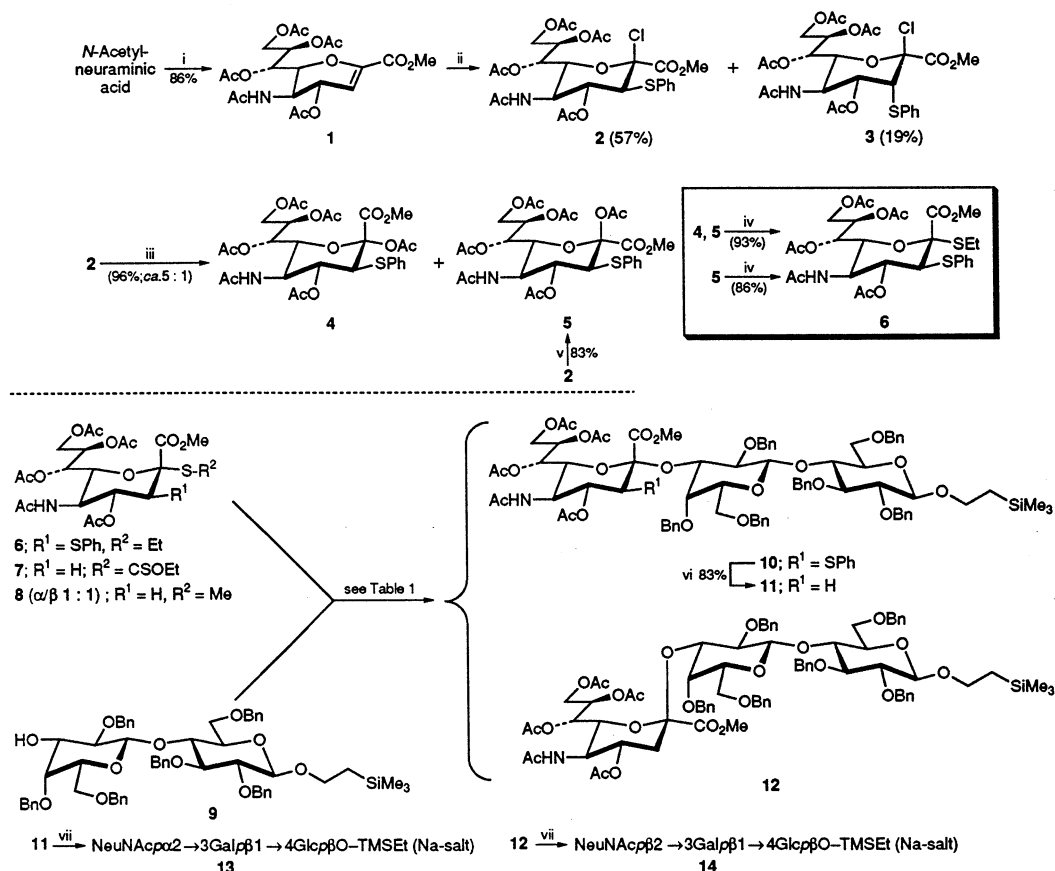 N-Acetyl-
neuraminic
acid
i
86%
OAc
OAc
AcO
AcHN
AcO
O
CO2Me
1
ii
OAc
OAc
AcO
AcHN
AcO
O
Cl
CO2Me
SPh
2 (57%)
+
OAc
OAc
AcO
AcHN
AcO
O
Cl
CO2Me
SPh
3 (19%)
2
iii
(96%;ca.5 : 1)
OAc
OAc
AcO
AcHN
AcO
O
CO2Me
OAc
SPh
4
+
OAc
OAc
AcO
AcHN
AcO
O
OAc
CO2Me
SPh
5
v
83%
2
4, 5
iv
(93%)
5
iv
(86%)
OAc
OAc
AcO
AcHN
AcO
O
CO2Me
SEt
SPh
6
OAc
OAc
AcO
AcHN
AcO
O
CO2Me
S-R2
R1
6; R1 = SPh, R2 = Et
7; R1 = H; R2 = CSOEt
8 (α/β 1 : 1) ; R1 = H, R2 = Me
see Table 1
HO
OBn
O
BnO
OBn
O
OBn
O
BnO
OBn
O
SiMe3
9
OAc
OAc
AcO
AcHN
AcO
O
CO2Me
R1
O
OBn
O
BnO
OBn
O
OBn
O
BnO
OBn
O
SiMe3
10; R1 = SPh
vi 83%
11; R1 = H
OAc
OAc
AcO
AcHN
AcO
O
CO2Me
O
OBn
O
BnO
OBn
O
OBn
O
BnO
OBn
O
SiMe3
12
11 vii NeuNAcpα2→3Galpβ1→4GlcpβO–TMSEt (Na-salt)
13
12 vii NeuNAcpβ2→3Galpβ1→4GlcpβO–TMSEt (Na-salt)
14